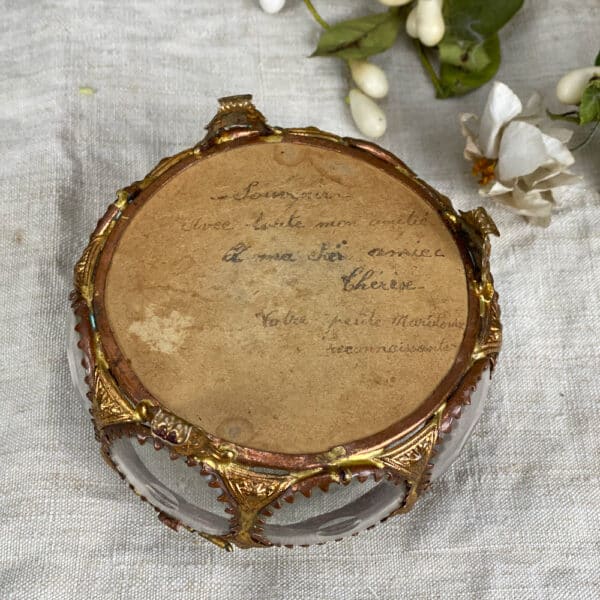 Souvenir
avec toute mon amitié
A ma chèr amie
Thérèse
Votre petite
reconnaissante